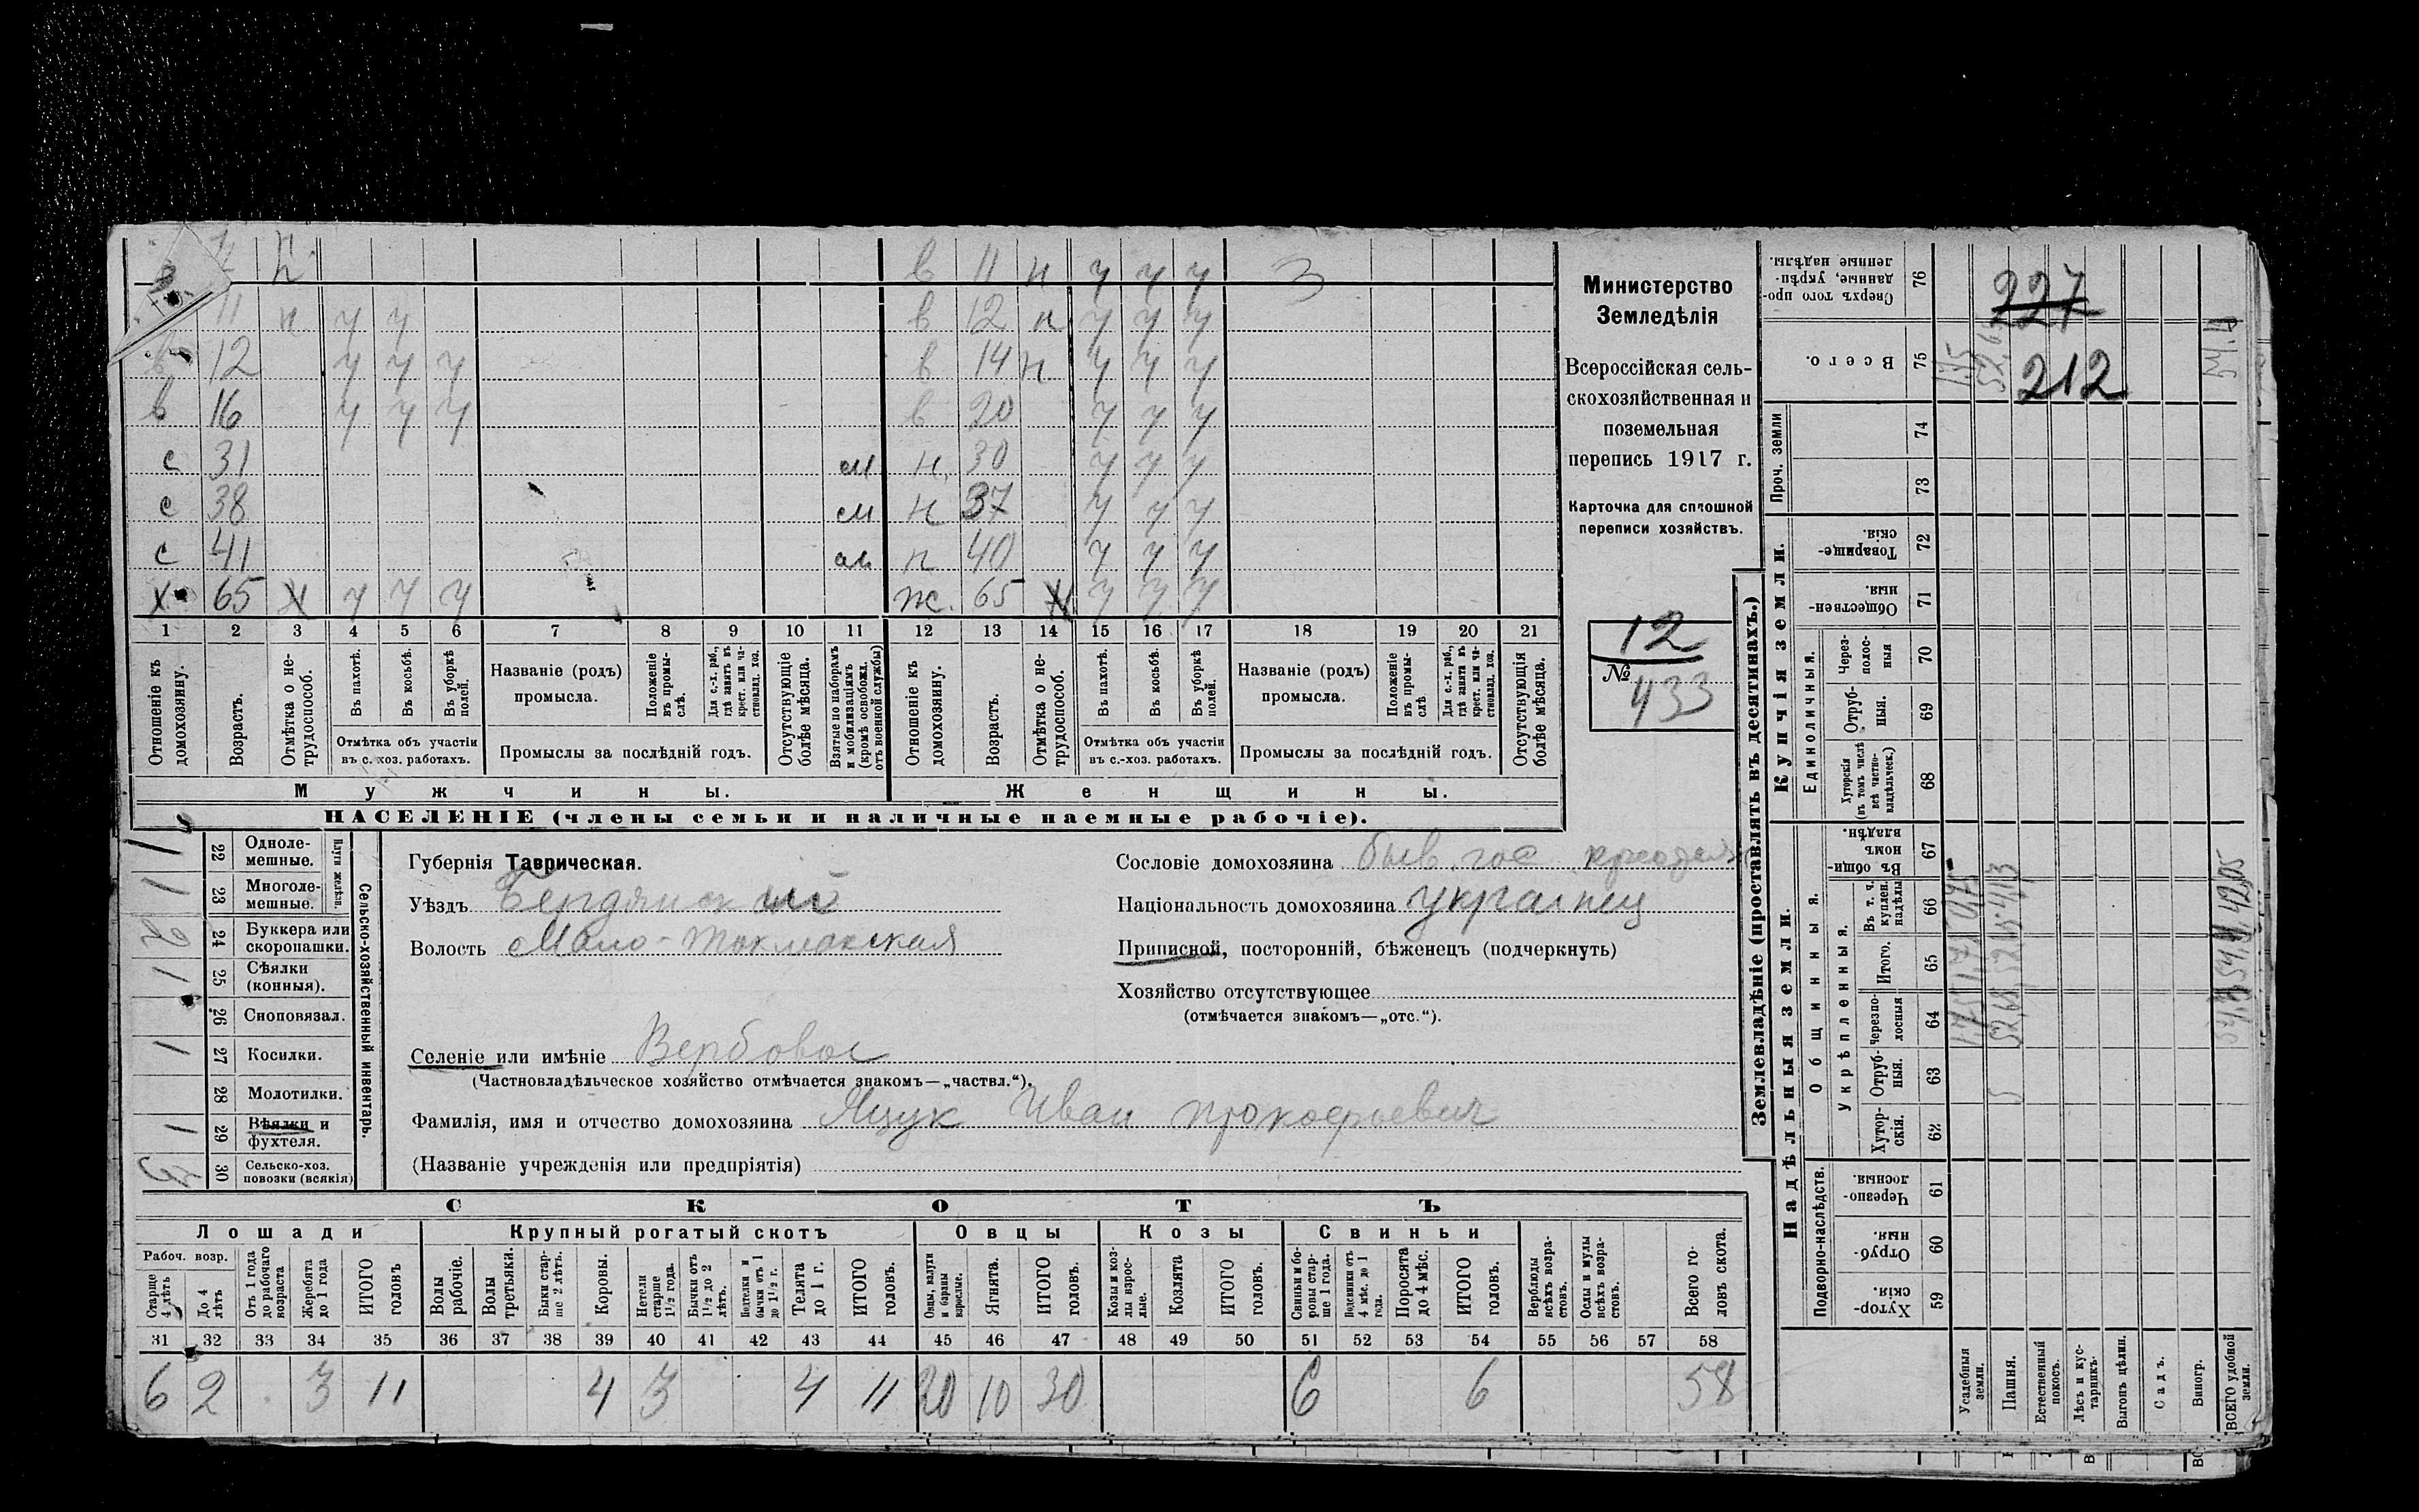 в 11 н у у у З
11 н у у в 12 н у у у
в 12 у у у в 14 н у у у
в 16 у у у в 20 у у у
с 31 м н 30 у у у
с 38 м н 37 у у у
с 41 м н 40 у у у
х 65 н у у у ж 65 н у у у
1 2 3 4 5 6 7 8 9 10 11 12 13 14 15 16 17 18 19 20 21
Отношеніе къ домохозяину.
Возрастъ.
Отмѣтка о не-трудоспособ.
Въ пахотѣ.
Въ косьбѣ.
Въ уборкѣ полей.
Отмѣтка объ участіи
въ с. хоз. работахъ.
Названіе (родъ)
промысла.
Положеніе въ промы-слѣ.
Для с.-х. раб., гдѣ занятъ въ крест. или ча-стновлад. хоз.
Промыслы за послѣдній годъ.
Отсутствующіе болѣе мѣсяца.
Взятые по наборамъ и мобилизаціямъ (кромѣ освобожд. отъ военной службы)
Отношеніе къ домохозяину.
Возрастъ.
Отмѣтка о не-трудоспособ.
Въ пахотѣ.
Въ косьбѣ.
Въ уборкѣ полей.
Отмѣтка объ участіи
въ с.-хоз. работахъ.
Названіе (родъ)
промысла.
Положеніе въ промы-слѣ
Для с.-х. раб., гдѣ занята въ крест. или ча-стновлад. хоз.
Промыслы за послѣдній годъ.
Отсутствующія болѣе мѣсяца.
Мужчины. Женщины.
НАСЕЛЕНІЕ (члены семьи и наличные наемные рабочіе).
Министерство
Земледѣлія
Всероссійская сель-
скохозяйственная и
поземельная
перепись 1917 г.
Карточка для сплошной
переписи хозяйствъ.
12
№
433
1 22 Одноле-мешные.
1 23 Многоле-мешные.
Плуги желѣзн.
2 24 Буккера или скоропашки.
1 25 Сѣялки (конныя).
26 Сноповязал.
1 27 Косилки.
28 Молотилки.
1 29 Вѣялки и фухтеля.
3 30 Сельско-хоз. повозки (всякія)
Сельско-хозяйственный инвентарь.
Губернія Таврическая.
Уѣздъ Бердянский
Волость Мало-Токмакская
Сословіе домохозяина быв. гос
Національность домохозяина українец
Приписной, посторонній, бѣженецъ (подчеркнуть)
Хозяйство отсутствующее
(отмѣчается знакомъ—„отс.“).
Селеніе или имѣніе Вербовое
(Частновладѣльческое хозяйство отмѣчается знакомъ—„частвл.“).
Фамилія, имя и отчество домохозяина Яцук Иван Прокофьевич
(Названіе учрежденія или предпріятія)
СКОТЪ
Лошади Крупный рогатый скотъ Овцы Козы Свиньи
Рабоч. возр.
Старше 4 лѣтъ
До 4 лѣтъ
Отъ 1 года до рабочаго возраста
Жеребята до 1 года
ИТОГО головъ
Волы рабочіе.
Волы третьяки.
Быки стар-ше 2 лѣтъ.
Коровы.
Нетели старше 1½ года.
Бычки отъ 1½ до 2 лѣтъ.
Телята до 1 г.
ИТОГО головъ.
Овцы, валухи и бараны взрослые.
Ягнята.
ИТОГО головъ.
Козы и коз-лы взрос-лые.
Козлята
ИТОГО головъ.
Свиньи и бо-ровы стар-ше 1 года.
Подсвинки отъ 4 мѣс. до 1 года.
Поросята до 4 мѣс.
ИТОГО головъ.
Верблюды всѣхъ возра-стовъ.
Ослы и мулы всѣхъ возра-стовъ.
Всего го-ловъ скота.
31 32 33 34 35 36 37 38 39 40 41 42 43 44 45 46 47 48 49 50 51 52 53 54 55 56 57 58
6 2 3 11 4 3 4 11 20 10 30 6 6 58
Землевладѣніе (проставлять въ десятинахъ.)
Надѣльныя земли. Купчія земли. Проч. земли
Подворно-наслѣдств.
Общинныя.
Укрѣпленныя.
Единоличныя.
59 Хутор-скія.
60 Отруб-ныя.
61 Черезпо-лосныя.
62 Хутор-скія.
63 Отруб-ныя.
64 Черезпо-лосныя
65 Итого.
66 Въ т. ч. куплен. надѣлы
67 Въ общин-номъ владѣн.
68 Хуторскія (въ томъ числѣ всѣ частно-владѣльческ.)
69 Отруб-ныя.
70 Через-полос-ныя
71 Обществен-ныя.
72 Товарище-скія.
73
74
75 Всего.
76 Сверхъ того про-данные, укрѣп-ленные надѣлы.
227
212
Усадебныя земли.
Пашня.
Естественный покосъ.
Лѣсъ и кус-тарникъ.
Выгонъ цѣлин.
Садъ.
Виногр.
ВСЕГО удобной земли.